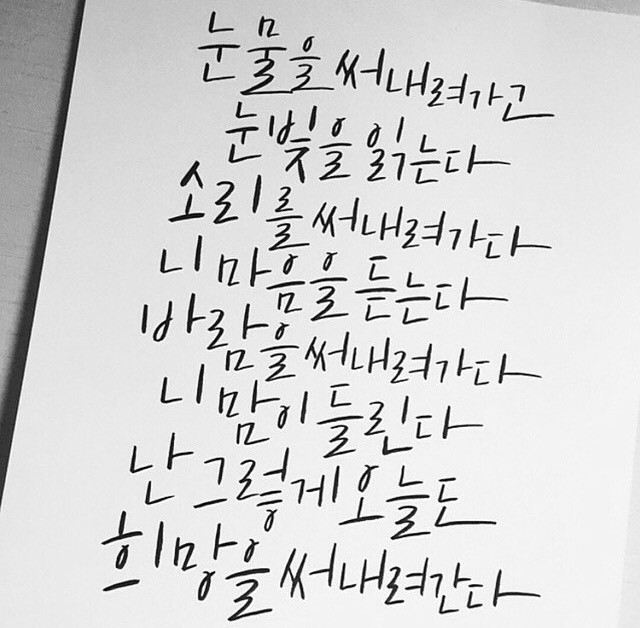 눈물을 써내려가고
눈빛을 읽는다
소리를 써내려가다
니 마음을 듣는다
바람을 써내려가다
니 맘이 들린다
난 그렇게 오늘도
희망을 써내려간다